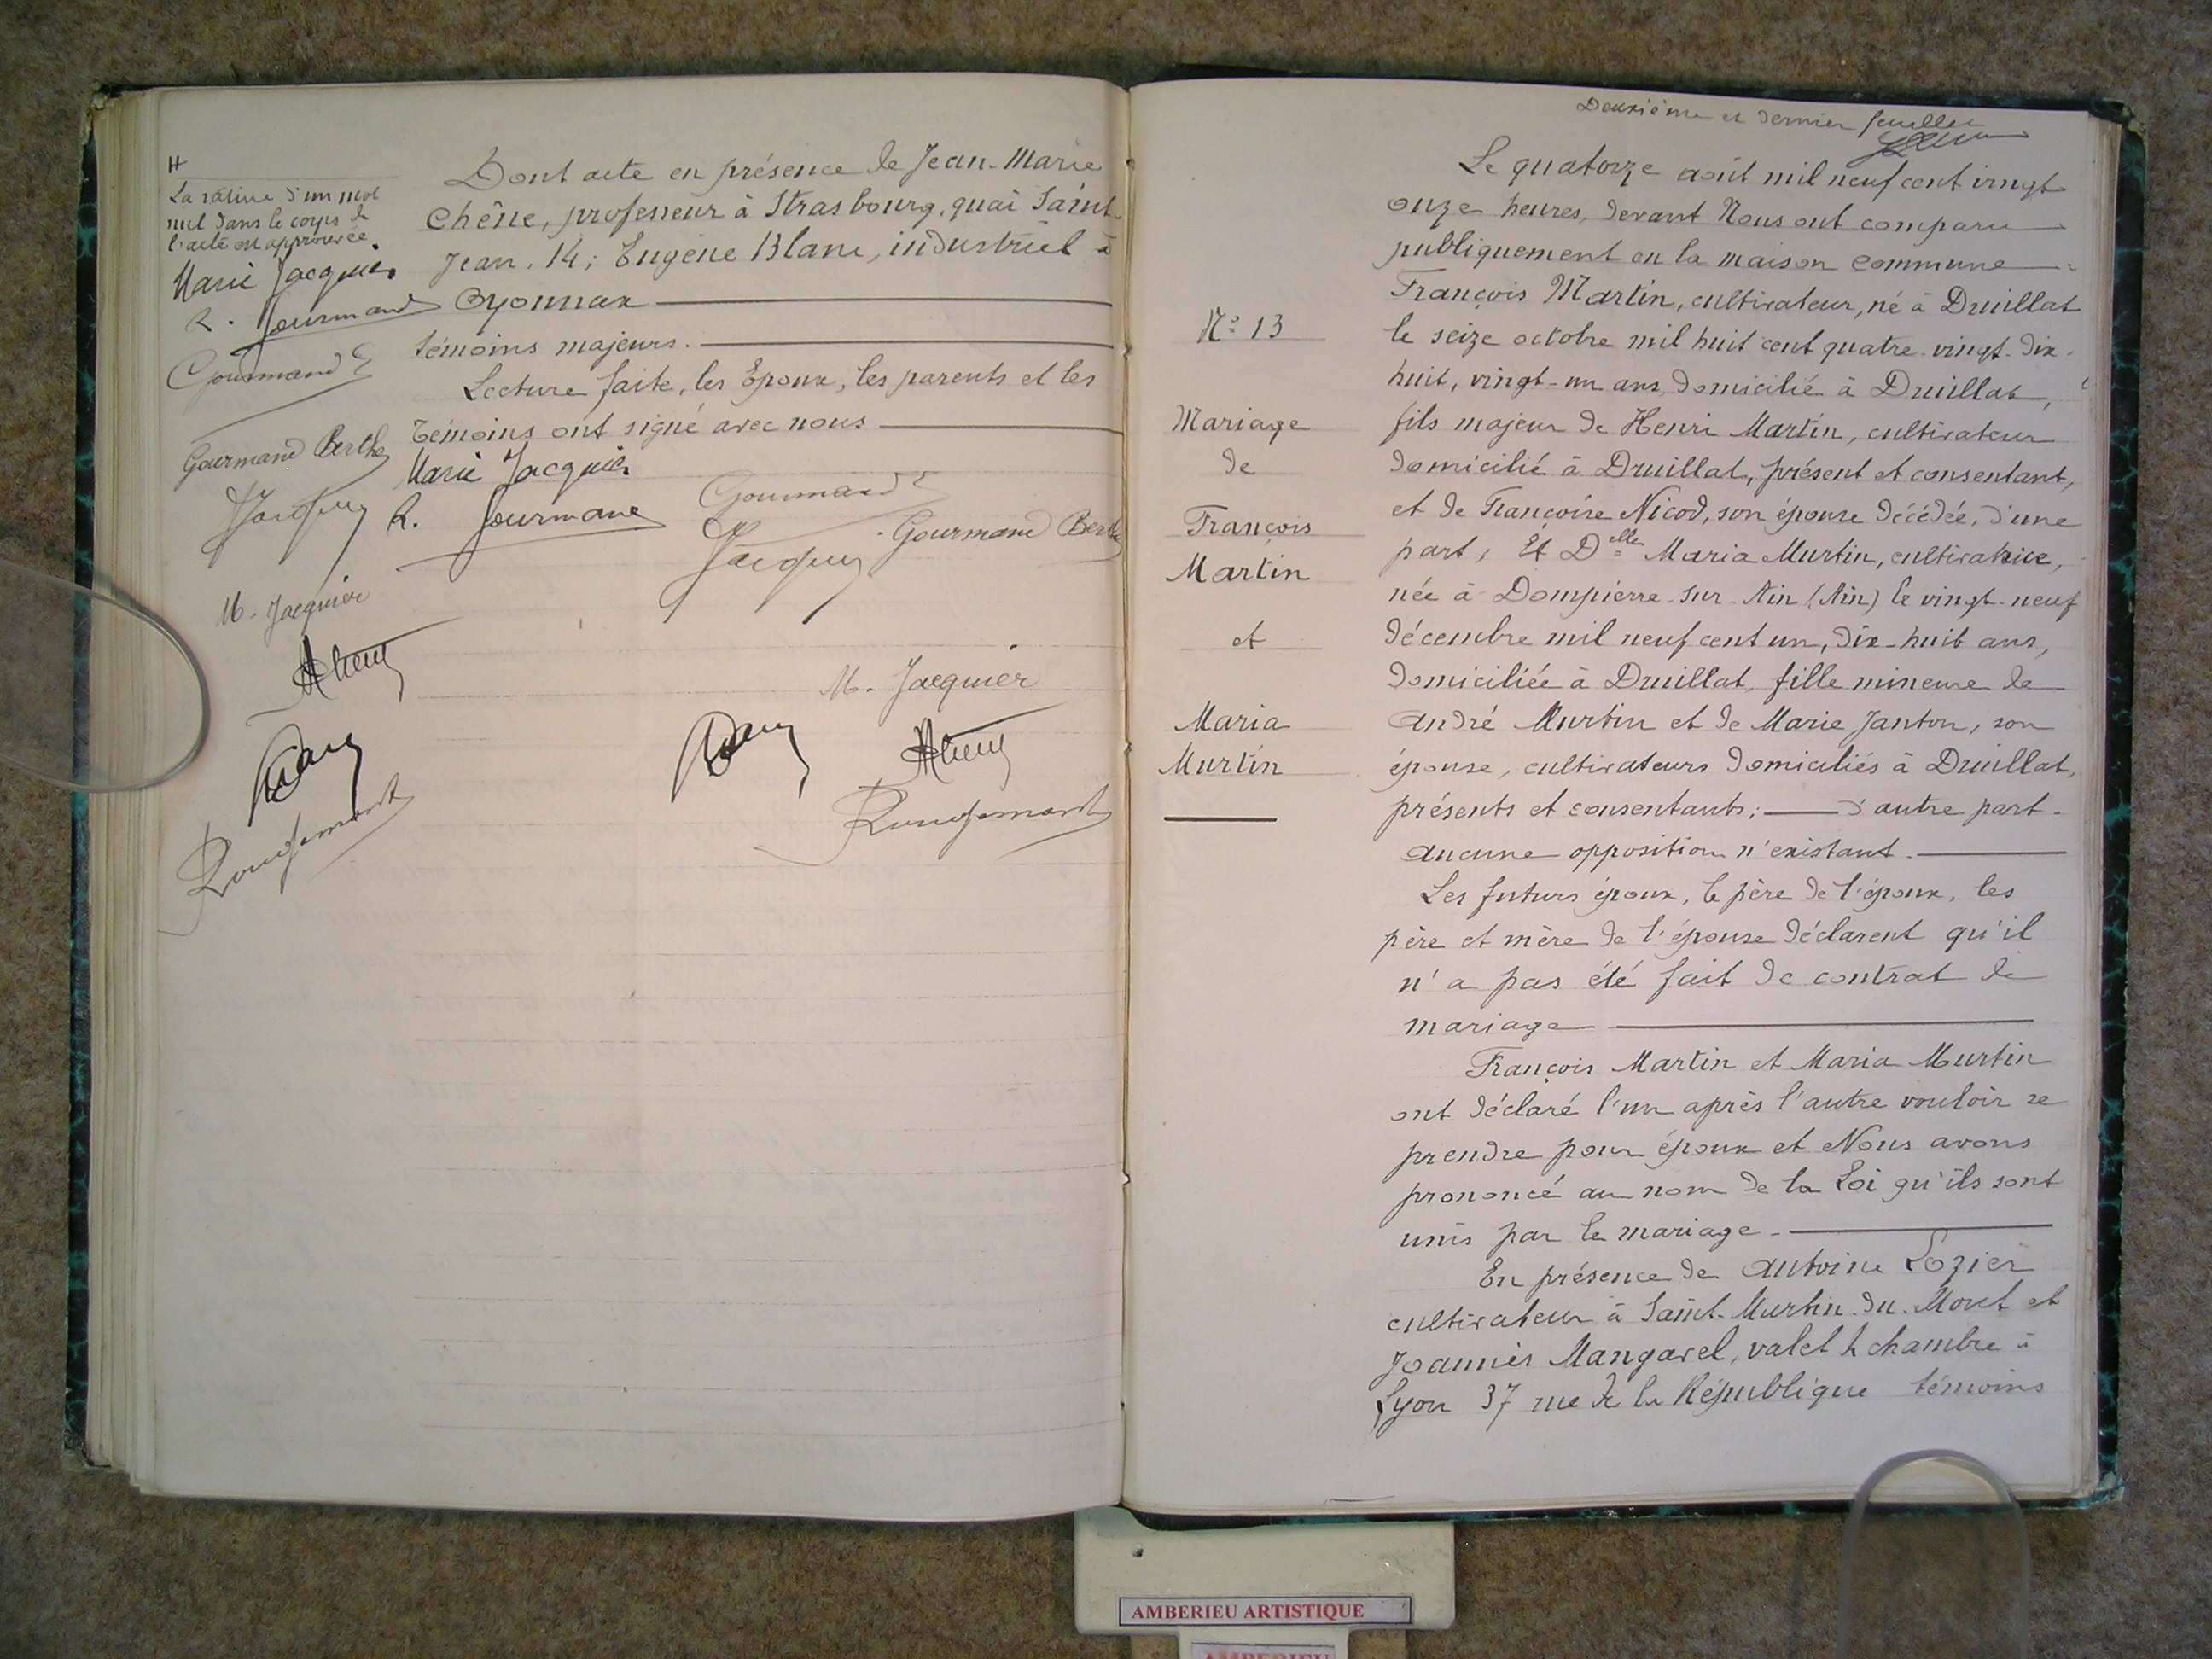 H
La rature d'un mot
nul dans le corps de
l'acte est approuvée.
Marie Jacquier
R. Gourmand
Gourmand E
Gourmand Berthe
Jacquier
M. Jacquier
Rougemont
Dont acte en présence de Jean-Marie
Chêne, professeur à Strasbourg, quai Saint-
Jean, 14; Eugène Blanc, industriel à
Oyonnax
témoins majeurs.
Lecture faite, les Epoux, les parents et les
Témoins ont signé avec nous
Marie Jacquier
R. Gourmand
Gourmand E
Gourmand Berthe
Jacquier
M. Jacquier
Rougemont
Deuxième et dernier feuillet
N° 13
Mariage
de
François
Martin
et
Maria
Murtin
Le quatorze août mil neuf cent vingt
onze heures, devant Nous ont comparu
publiquement en la maison commune
François Martin, cultivateur, né à Druillat
le seize octobre mil huit cent quatre-vingt-dix-
huit, vingt-un ans, domicilié à Druillat,
fils majeur de Henri Martin, cultivateur
domicilié à Druillat, présent et consentant,
et de Françoise Nicod, son épouse décédée, d'une
part; Et Delle Maria Murtin, cultivatrice,
née à Dompierre-sur-Ain (Ain) le vingt-neuf
décembre mil neuf cent un, dix-huit ans,
domiciliée à Druillat, fille mineure de
André Murtin et de Marie Janton, son
épouse, cultivateurs domiciliés à Druillat,
présents et consentants; d'autre part.
Aucune opposition n'existant.
Les futurs époux, le père de l'époux, les
père et mère de l'épouse déclarent qu'il
n'a pas été fait de contrat de
mariage
François Martin et Maria Murtin
ont déclaré l'un après l'autre vouloir se
prendre pour époux et Nous avons
prononcé au nom de la Loi qu'ils sont
unis par le mariage.
En présence de Antoine Lozier
cultivateur à Saint-Martin-du-Mont et
Joannès Mangavel, valet de chambre à
Lyon 37 rue de la République témoins
AMBERIEU ARTISTIQUE
AMBERIEU